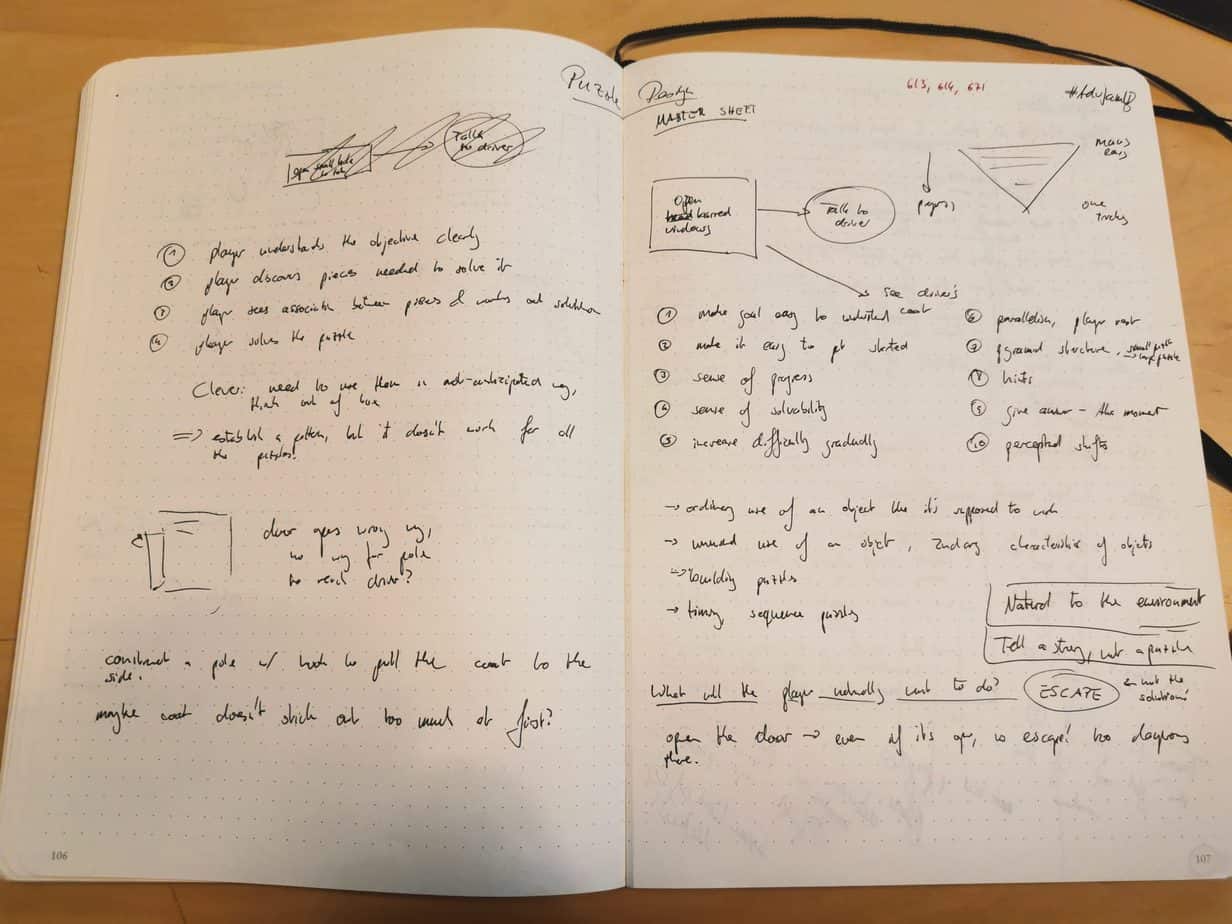 Puzzle Design
MASTER SHEET
613, 614, 671
Talk
to driver
① player understands the objective clearly
② player discovers pieces needed to solve it
③ player sees association between pieces & works out solution
④ player solves the puzzle
Clever: need to use them in non-anticipated way,
think out of box
⇒ establish a pattern, but it doesn't work for all
the puzzles!
door goes wrong way,
no way for pole
to reach driver?
construct a pole w/ hook to pull the coat to the
side.
maybe coat doesn't stick out too much at first?
Open
barred
windows
Talk to
driver
see driver's
coat
progress
many
ears
one
① make goal easy to understand
② make it easy to get started
③ sense of progress
④ sense of solvability
⑤ increase difficulty gradually
⑥ parallelism, player rest
⑦ pyramid structure, small puzzle
→ large puzzle
⑧ hints
⑨ give answer - aha moment
⑩ perceptual shifts
→ ordinary use of an object like it's supposed to work
→ unusual use of an object, 2ndary characteristics of objects
→ building puzzles
→ timing, sequence puzzles
Natural to the environment
Tell a story, not a puzzle
What will the player naturally want to do? ESCAPE
← not the
solution!
open the door → even if it's open, no escape! too dangerous
there.
106
107